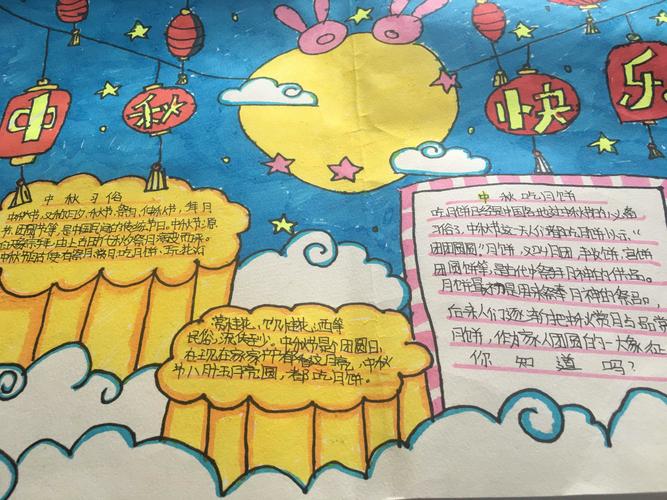 中秋快乐
中秋习俗
中秋节,又称月夕、秋节、
节、团圆节等,是中国民间的传统节日。中秋节源
自天象崇拜,由上古时代秋夕祭月演变而来。
中秋节自古便有祭月、赏月、吃月饼、玩花灯
赏桂花、饮桂花酒等
民俗,流传至今。中秋节是个团圆日,
在现在家家户户都看月亮,中秋
节八月十五月亮圆,都吃月饼。
中秋吃月饼
吃月饼已经是中国各地过中秋节的必备
习俗了,中秋节这一天人们都吃月饼以示“
团团圆圆”月饼,又叫月团、丰收饼、宫饼
团圆饼等,是古代中秋祭月神的供品。
月饼最初是用来祭奉月神的祭品。
后来人们逐渐把中秋赏月与品尝
月饼,作为家人团圆的一大象征
你知道吗?